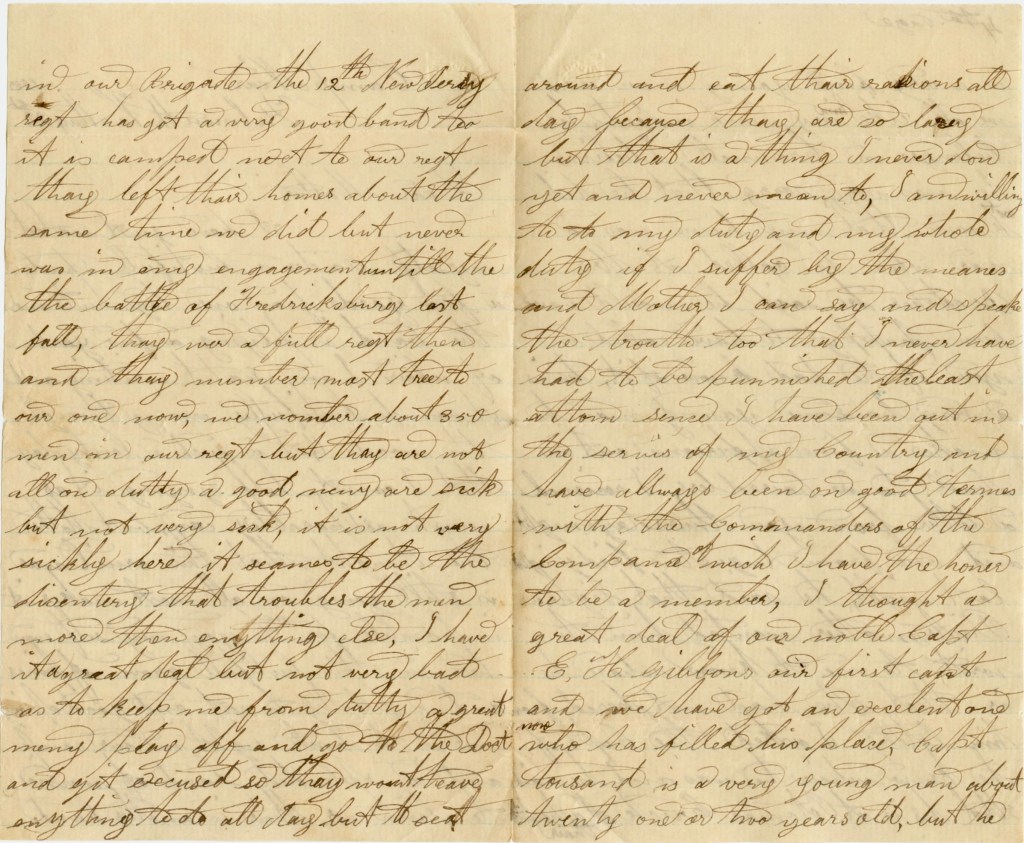 in our Brigade the 12th New Jersy
regt has got a very good band too
it is camped next to our regt
thay left thair homes about the
same time we did but never
was in eny engagement untill the
the battle of Fredricksburg last
fall, thay wer a full regt then
and thay number most tree to
our one now, we nomber about 350
men in our regt but thay are not
all on dutty a good meny are sick
but not very sick, it is not very
sickly here it seames to be the
disentery that troubles the men
more then enything else, I have
it a great deal but not very bad
as to keep me from dutty a great
meny play off and go to the Doct
and git excused so thay wont heave
enything to do all day but to eat
around and eat thair rations all
day because thay are so lazey
but that is a thing I never don
yet and never mean to, I am willing
to do my duty and my whole
duty if I suffer by the meanes
and Mother I can say and speake
the trouth too that I never have
had to be punnished the least
attom sence I have been out in
the servis of my Country and
have allways been on good termes
with the Commanders of the
Companie of wich I have the honer
to be a member, I thought a
great deal of our noble Capt
E, H, Gibbons our first capt
and we have got an excelent one
now
who has filled his place, Capt
tousand is a very young man about
twenty one or two years old, but he